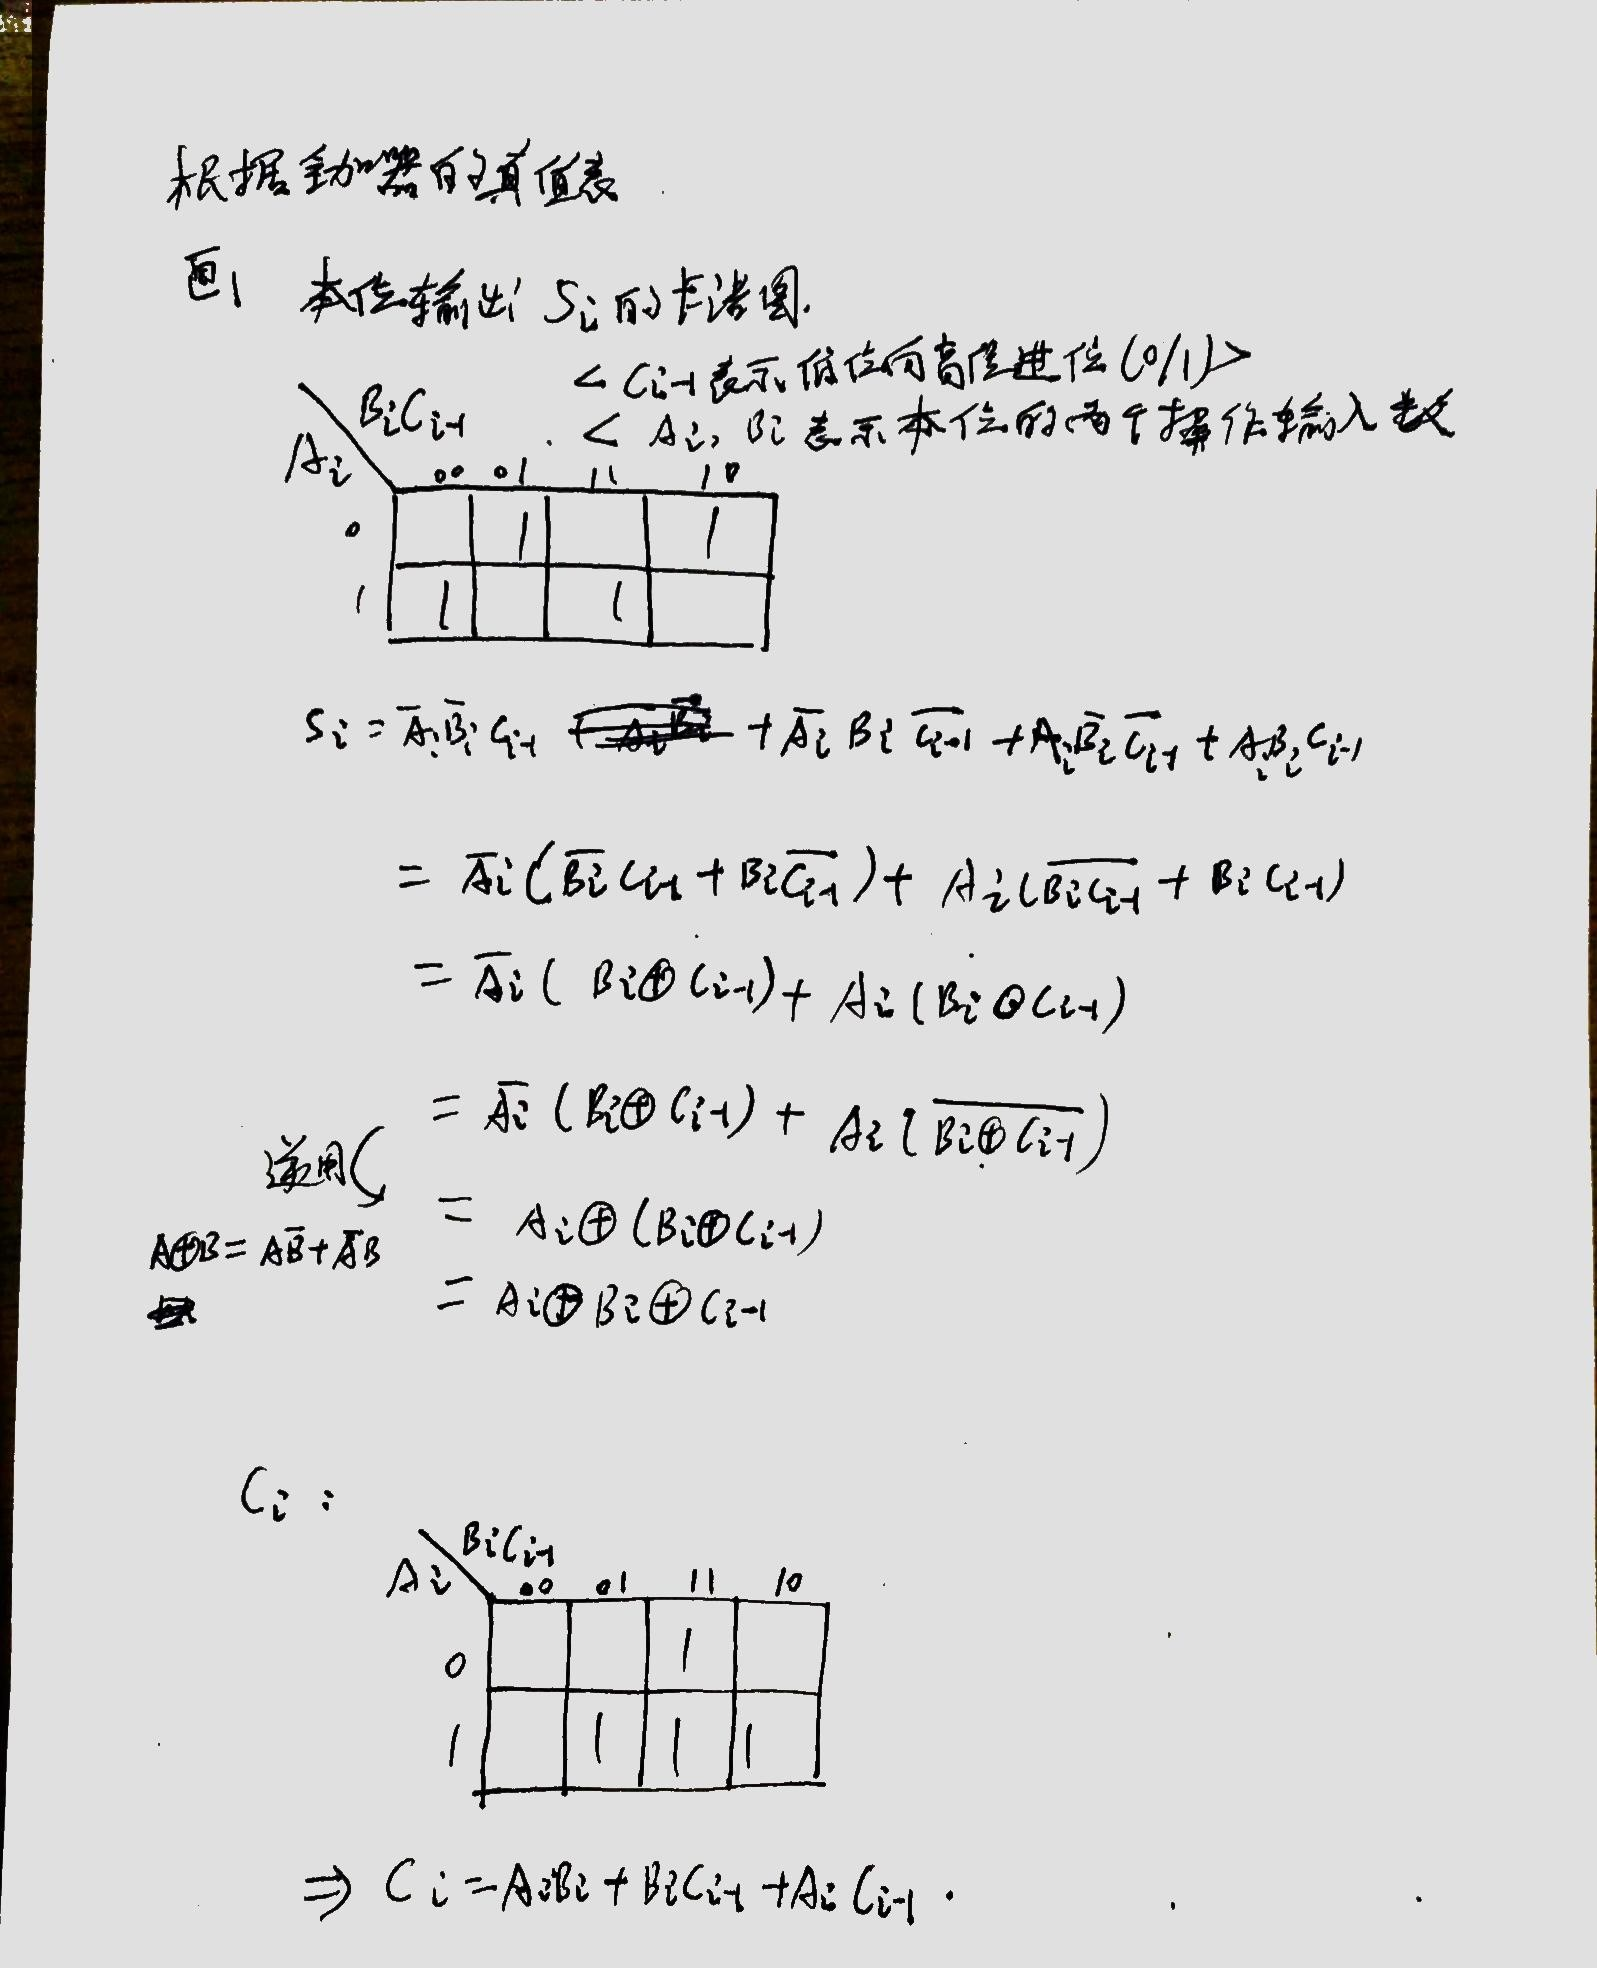 根据全加器的真值表
画1 本位输出 Si 的卡诺图.
< Ci-1 表示低位向高位进位 (0/1) >
BiCi-1 . < Ai, Bi 表示本位的两个操作输入数
Ai 00 01 11 10
0 1 1
1 1 1
Si = A̅i B̅i Ci-1 + A̅i Bi C̅i-1 + Ai B̅i C̅i-1 + Ai Bi Ci-1
= A̅i ( B̅i Ci-1 + Bi C̅i-1 ) + Ai ( \overline{BiCi-1} + Bi Ci-1 )
= A̅i ( Bi ⊕ Ci-1 ) + Ai ( Bi ⊙ Ci-1 )
= A̅i ( Bi ⊕ Ci-1 ) + Ai ( \overline{Bi ⊕ Ci-1} )
逆用
= Ai ⊕ ( Bi ⊕ Ci-1 )
A⊕B = AB̅ + A̅B
= Ai ⊕ Bi ⊕ Ci-1
Ci :
BiCi-1
Ai 00 01 11 10
0 1
1 1 1 1
⇒ Ci = AiBi + BiCi-1 + Ai Ci-1 .